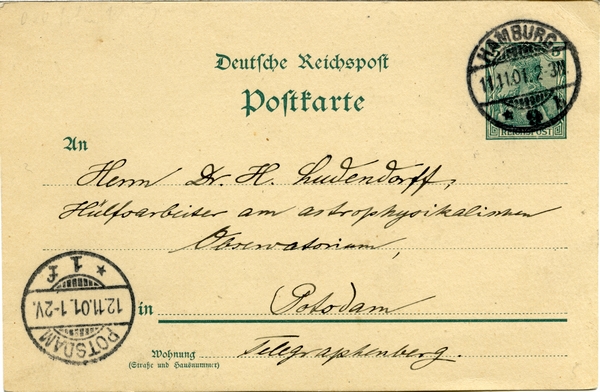 Deutsche Reichspost
Postkarte
HAMBURG
11.11.01.2-3N
* 9 i.
REICHSPOST
An
Herrn Dr. H. Ludendorff,
Hülfsarbeiter am astrophysikalischen
Observatorium,
in Potsdam
Wohnung Telegraphenberg.
(Straße und Hausnummer)
POTSDAM
12.11.01.1-2V.
* 1 f